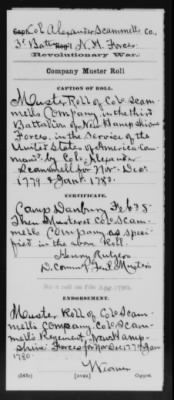 Capt Col. Alexander Scammells Co.,
3d Batt. Regt N. H. Forces.
Revolutionary War.
Company Muster Roll
CAPTION OF ROLL.
Muster Roll of Col. Scam-
mells Company, in the third
Battalion of New Hampshire
Forces, in the Service of the
United States of America com
mand. by Col. Alexander
Scammell for Nov. Dec.
1779 & Jany. 1780.
CERTIFICATE.
Camp Danbury Feb 6 78
Then Mustered Col. Scam-
mells Company as speci-
fied in the above Roll.
Henry Rutgers
D. Commy Genl Musters
ENDORSEMENT.
Muster Roll of Col. Scam-
mells Company, Col. Scam-
mells Regiment, New Hamp-
shire Forces for Nov Dec 1779 & Jan
1780.
Copyist.